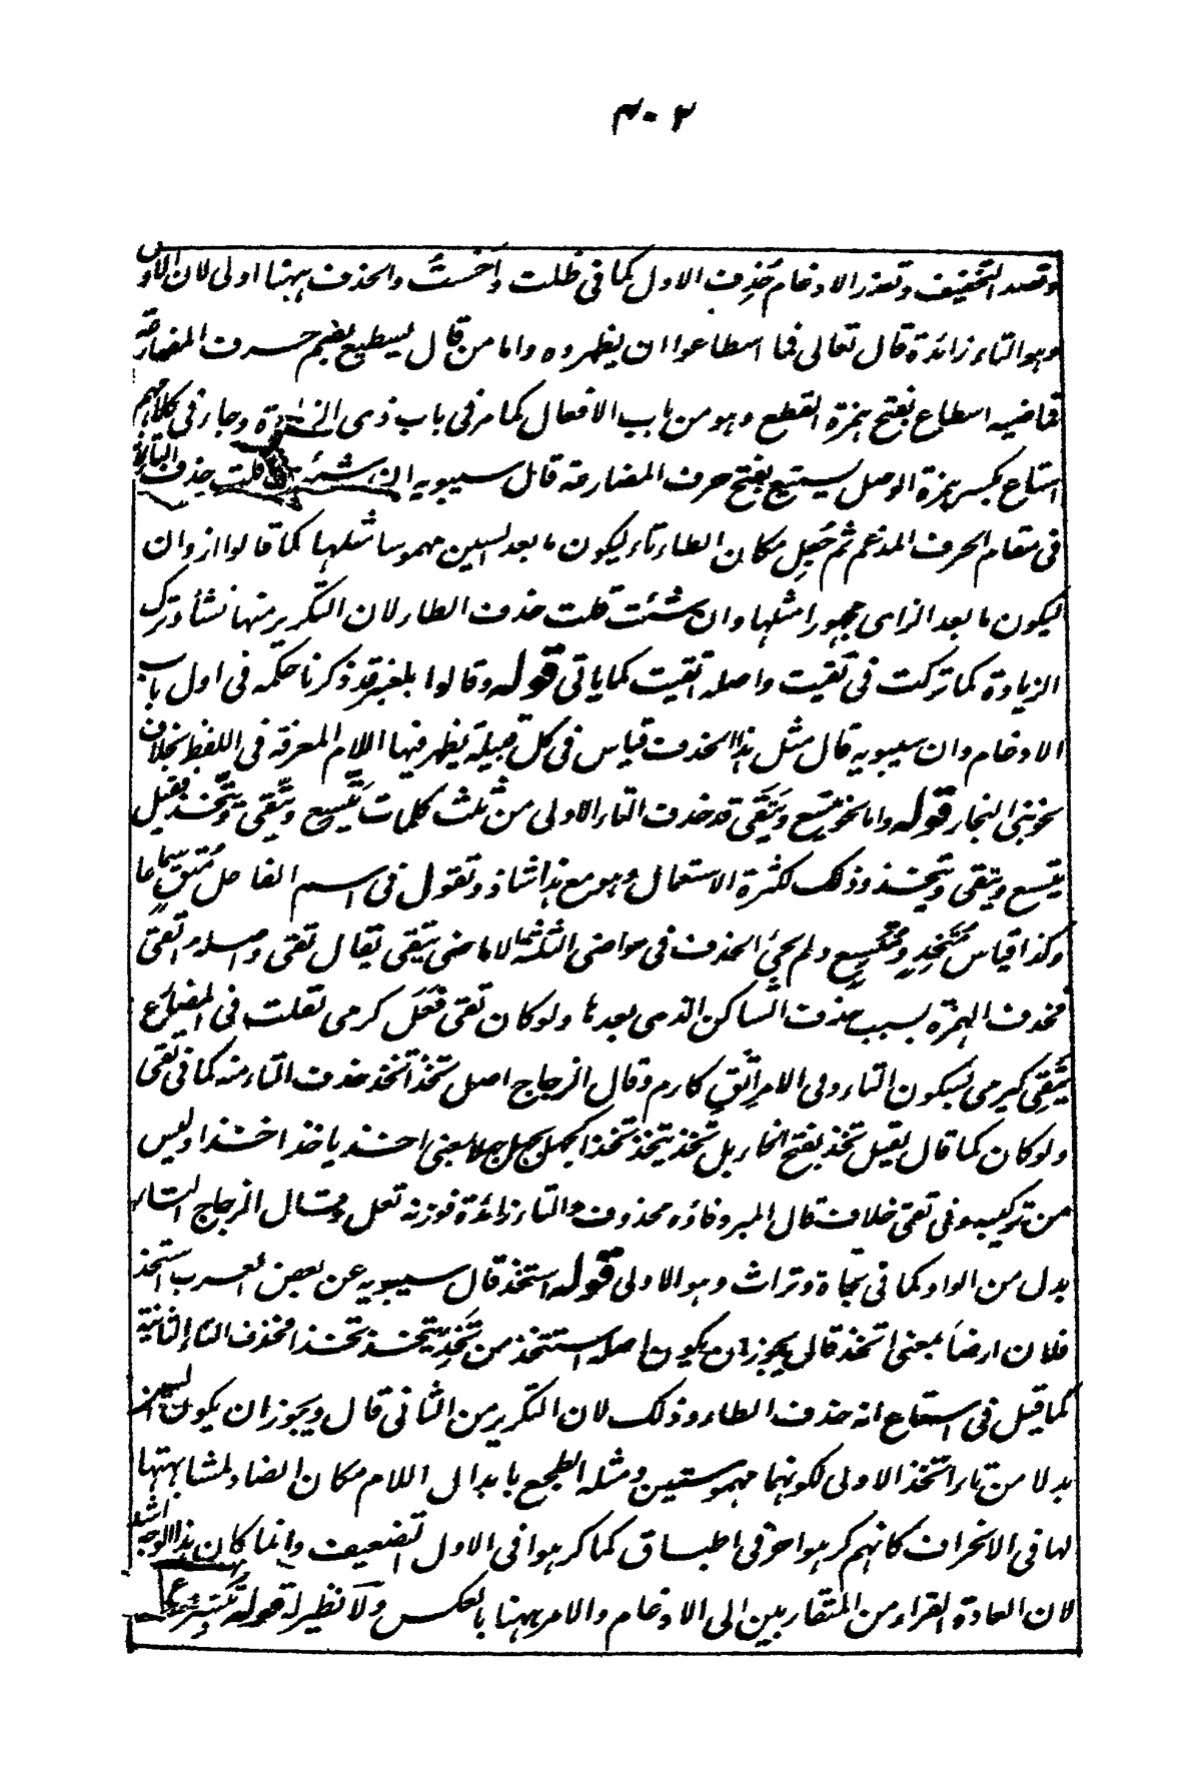 ۴۰۲
وقصد التخفيف وتعذر الادغام حُذِفَ الاول كما فى ظَلت وأحَسْتُ والحذف ههنا اولى لان الاول
وهو التاء زائدة قال تعالى فما اسطاعوا ان يظهروه واما من قال يُسطيع بضم حرف المضارعة
فماضيه اسطاع بفتح همزة القطع وهو من باب الافعال كما مر فى باب ذى الزيادة وجاء فى كلامهم
استاع بكسر همزة الوصل يستيع بفتح حرف المضارعة قال سيبويه ان شئت قلت حذف التاء لانه
فى مقام الحرف المدغم ثم جُعِل مكان الطاء تاء ليكون ما بعد السين مهموسا مثلها كما قالوا ازدان
ليكون ما بعد الزاى مجهورا مثلها وان شئت قلت حذف الطاء لان التكرير منها نشأ وترك
الزيادة كما تركت فى تقيت واصله اتقيت كما ياتى قوله وقالوا بلعنبر قد ذكرنا حكمه فى اول باب
الادغام وان سيبويه قال مثل هذا الحذف قياس فى كل قبيلة يظهر فيها اللام المعرفة فى اللفظ بخلاف
نحو بنى النجار قوله واما نحو يَتَسِع ويَتَقى قد حذف التاء الاولى من ثلث كلمات يَتَّسِع ويَتَّقى ويَتَّخذ فقيل
يتسع ويتقى ويتخذ وذلك لكثرة الاستعمال وهو مع هذا شاذ وتقول فى اسم الفاعل مُتَقٍ سماعا
وكذا قياس مُتَخِذٍ ومُتَسِعٍ ولم يجئ الحذف فى مواضى الثلثة الا ماضى يتقى يقال تقى واصله اتقى
فحذف الهمزة بسبب حذف الساكن الذى بعدها ولو كان تقى فَعَلَ كرمى لقلت فى المضارع
يَتْقِى كيرمى بسكون التاء وفى الامر اتْقِ كارم وقال الزجاج اصل تخذ اتخذ حذف التاء منه كما فى تقى
ولو كان كما قال لقيل تخذ بفتح الخاء بل تخذ يتخذ تخذا كجهل يجهل جهلا بمعنى اخذ ياخذ اخذا وليس
من تركيبه وفى تقى خلاف قال المبرد فاؤه محذوف والتاء زائدة فوزنه تعل وقال الزجاج التاء
بدل من الواو كما فى تجاة وتراث وهو الاولى قوله استخذ قال سيبويه عن بعض العرب استخذ
فلان ارضا بمعنى اتخذ قال يجوز ان يكون اصله استتخذ من تَخِذَ يتخذ تخذا فحذف التاء الثانية
كما قيل فى استاع انه حذف الطاء وذلك لان التكرير من الثانى قال ويجوز ان يكون السين
بدلا من تاء اتخذ الاولى لكونهما مهموستين ومثله الطجع بابدال اللام مكان الضاد لمشابهتها
لها فى الانحراف كانهم كرهوا حرفى اطباق كما كرهوا فى الاول التضعيف وانما كان هذا الوجه اشذ
لان العادة الفرار من المتقاربين الى الادغام والامر ههنا بالعكس ولا نظير له قوله